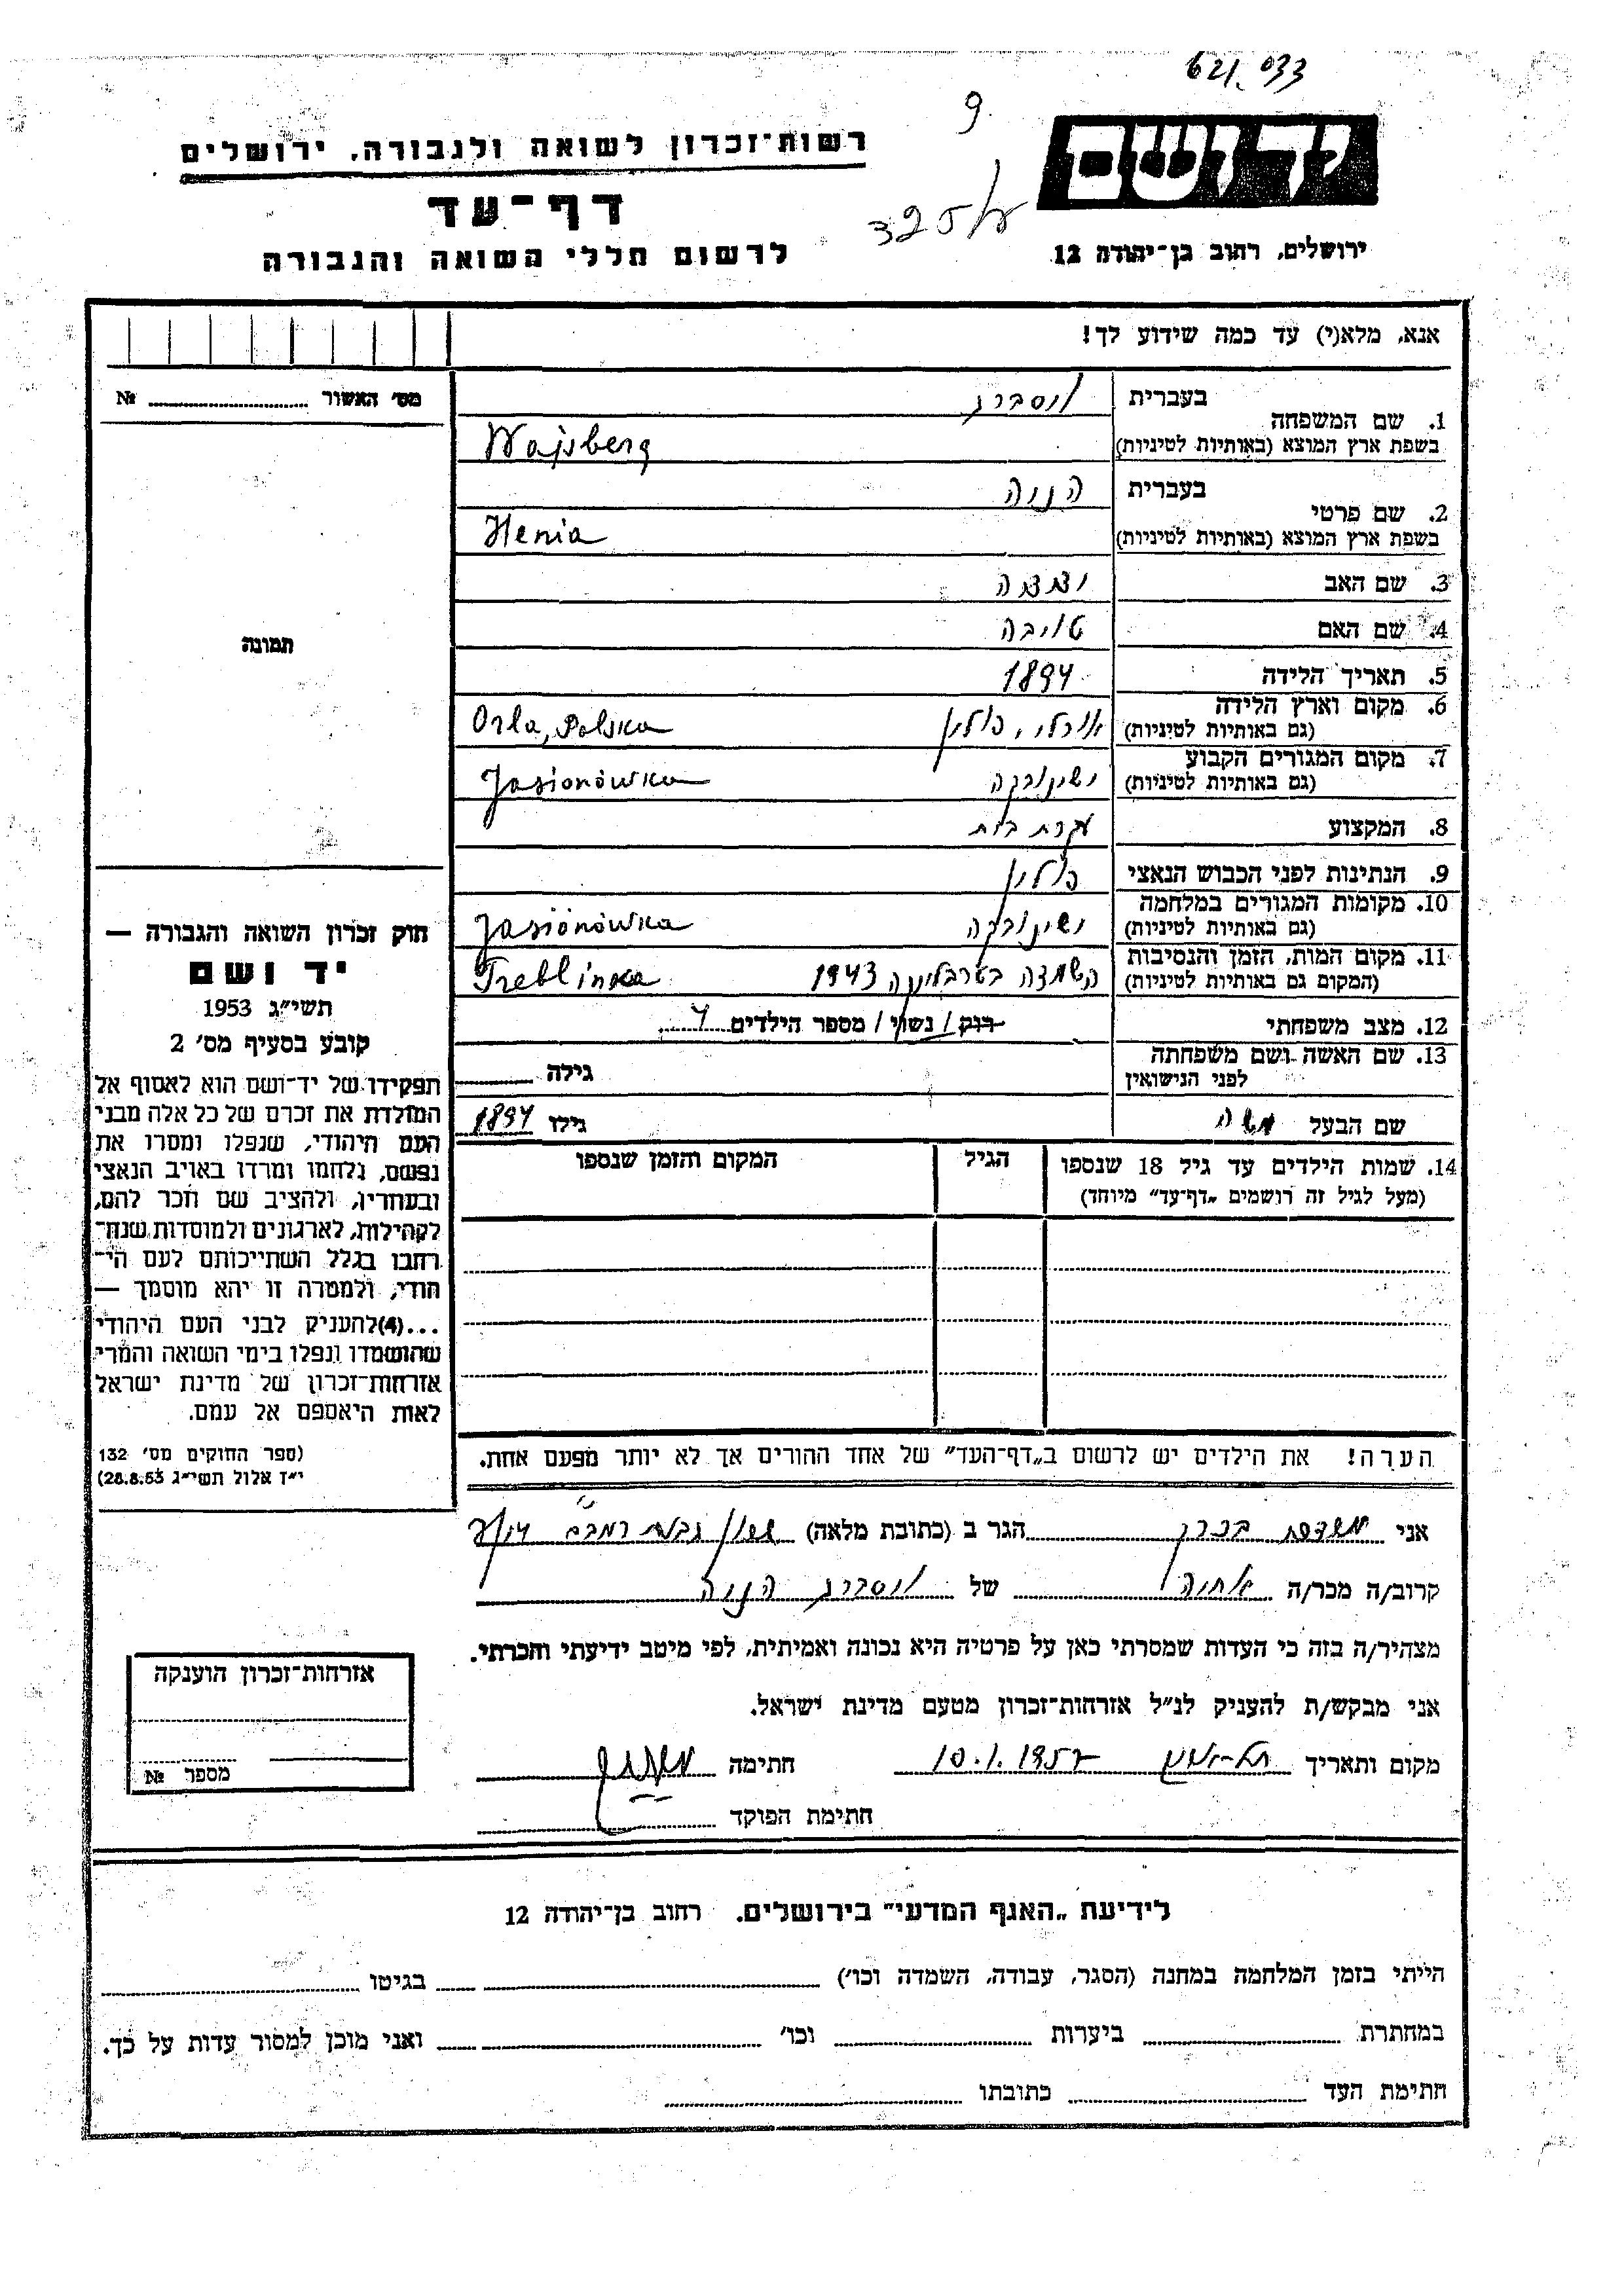 621.033
9
רשות־זכרון לשואה ולגבורה, ירושלים
יד ושם
דף־עד
325/
לרשום חללי השואה והגבורה
ירושלים, רחוב בן־יהודה 12
אנא, מלא(י) עד כמה שידוע לך!
מס׳ האשור № 
1. שם המשפחה בעברית וסברג
בשפת ארץ המוצא (באותיות לטיניות) Wajsberg
2. שם פרטי בעברית הניה
בשפת ארץ המוצא (באותיות לטיניות) Henia
3. שם האב
4. שם האם טויבה
תמונה
5. תאריך הלידה 1894
6. מקום וארץ הלידה (גם באותיות לטיניות) אורלי, פולין Orla, Polska
7. מקום המגורים הקבוע (גם באותיות לטיניות) ישינובקה Jasionówka
8. המקצוע עקרת בית
9. הנתינות לפני הכבוש הנאצי פולין
10. מקומות המגורים במלחמה (גם באותיות לטיניות) ישינובקה Jasionówka
11. מקום המות, הזמן והנסיבות (המקום גם באותיות לטיניות) הושמדה בטרבלינקה 1943 Treblinka
12. מצב משפחתי רווק / נשוי / מספר הילדים 4
13. שם האשה ושם משפחתה לפני הנישואין גילה
שם הבעל משה גילו 1894
14. שמות הילדים עד גיל 18 שנספו הגיל המקום והזמן שנספו
(מעל לגיל זה רושמים „דף־עד״ מיוחד)
חוק זכרון השואה והגבורה —
יד ושם
תשי״ג 1953
קובע בסעיף מס׳ 2
תפקידו של יד־ושם הוא לאסוף אל
המולדת את זכרם של כל אלה מבני
העם היהודי, שנפלו ומסרו את
נפשם, נלחמו ומרדו באויב הנאצי
ובעוזריו, ולהציב שם וזכר להם,
לקהילות, לארגונים ולמוסדות שנח־
רחבו בגלל השתייכותם לעם הי־
הודי, ולמטרה זו יהא מוסמך —
...(4)להעניק לבני העם היהודי
שהושמדו ונפלו בימי השואה והמרי
אזרחות־זכרון של מדינת ישראל
לאות היאספם אל עמם.
(ספר החוקים מס׳ 132
י״ז אלול תשי״ג 28.8.53)
הערה! את הילדים יש לרשום ב„דף־העד״ של אחד ההורים אך לא יותר מפעם אחת.
אני הגר ב (כתובת מלאה)
קרוב/ה מכר/ה של וסברג הניה
מצהיר/ה בזה כי העדות שמסרתי כאן על פרטיה היא נכונה ואמיתית, לפי מיטב ידיעתי והכרתי.
אני מבקש/ת להעניק לנ״ל אזרחות־זכרון מטעם מדינת ישראל.
מקום ותאריך חתימה
חתימת הפוקד
אזרחות־זכרון הוענקה
מספר №
לידיעת „האגף המדעי״ בירושלים. רחוב בן־יהודה 12
הייתי בזמן המלחמה במחנה (הסגר, עבודה, השמדה וכו׳) בגיטו
במחתרת ביערות וכו׳ ואני מוכן למסור עדות על כך.
חתימת העד כתובתו